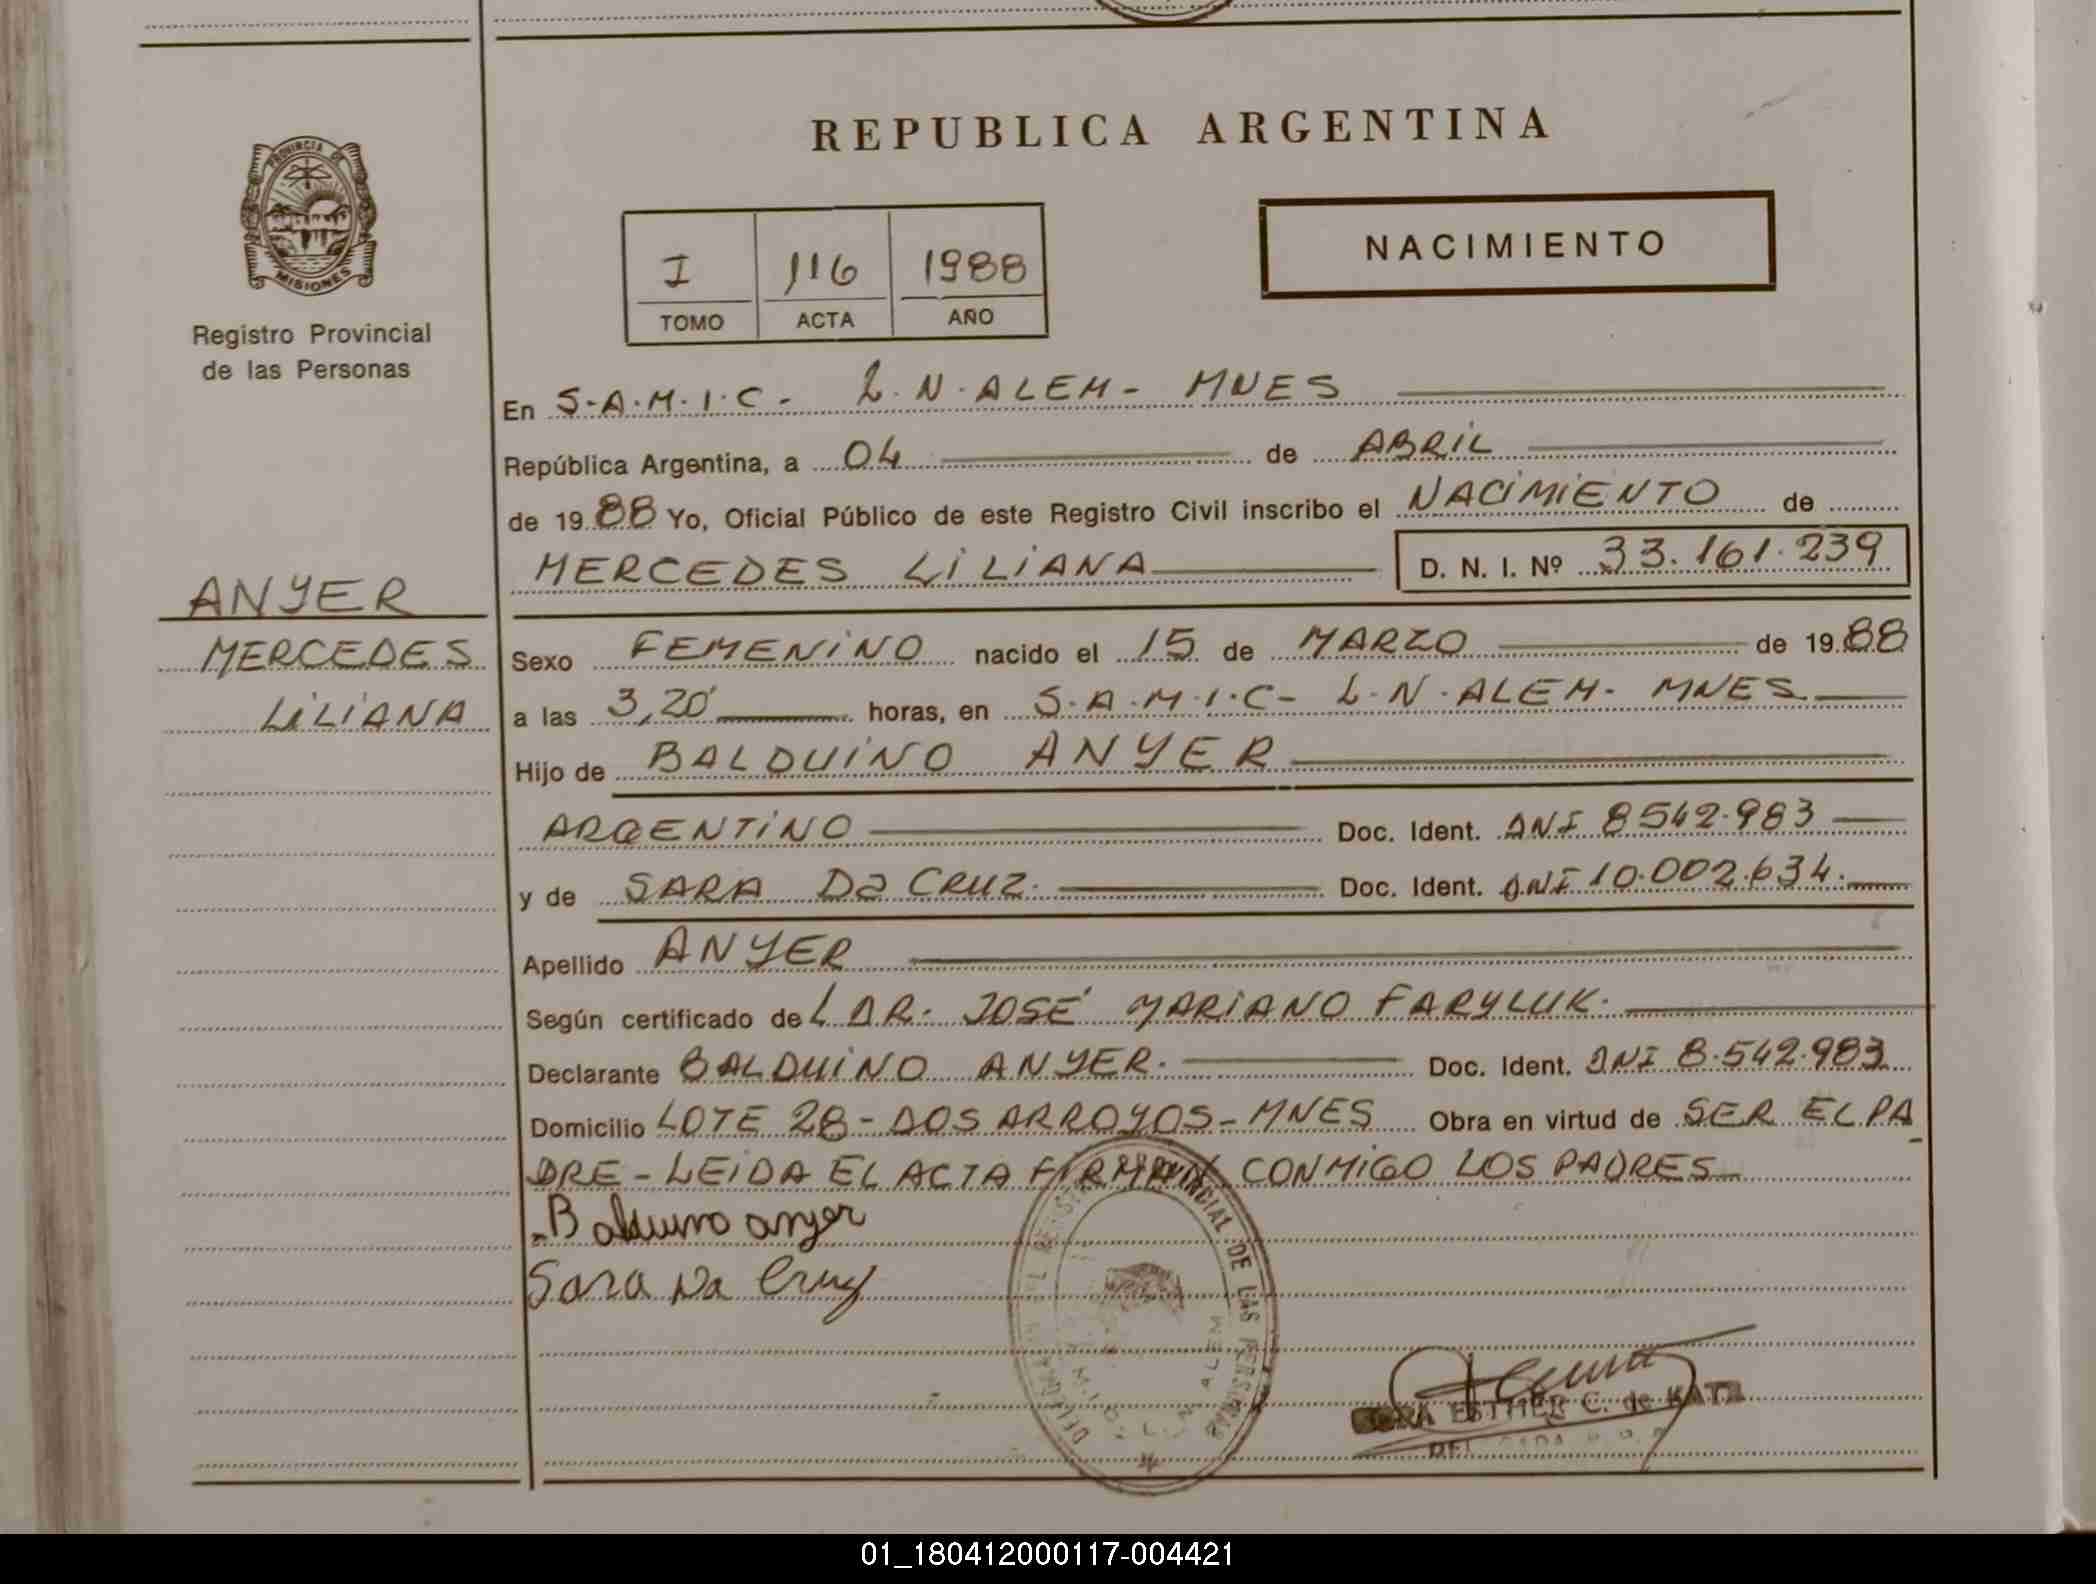 REPUBLICA ARGENTINA
PROVINCIA DE
MISIONES
Registro Provincial
de las Personas
I 116 1988
TOMO ACTA AÑO
NACIMIENTO
En S.A.M.I.C- L.N.ALEM- MNES
República Argentina, a 04 de ABRIL
de 1988 Yo, Oficial Público de este Registro Civil inscribo el NACIMIENTO de
MERCEDES LILIANA D. N. I. Nº 33.161.239
ANYER
MERCEDES
LILIANA
Sexo FEMENINO nacido el 15 de MARZO de 1988
a las 3,20 horas, en S.A.M.I.C- L.N.ALEM- MNES
Hijo de BALDUINO ANYER
ARGENTINO Doc. Ident. DNI 8542.983
y de SARA Da CRUZ. Doc. Ident. DNI 10.002.634.
Apellido ANYER
Según certificado de L DR. JOSÉ MARIANO FARYLUK.
Declarante BALDUINO ANYER. Doc. Ident. DNI 8.542.983
Domicilio LOTE 28-DOS ARROYOS-MNES Obra en virtud de SER EL PA
DRE-LEIDA EL ACTA FIRMAN CONMIGO LOS PADRES
Balduino anyer
Sara Da Cruz
PROVINCIAL DE LAS PERSONAS
ALEM
ESTHER C. de KATZ
01_180412000117-004421